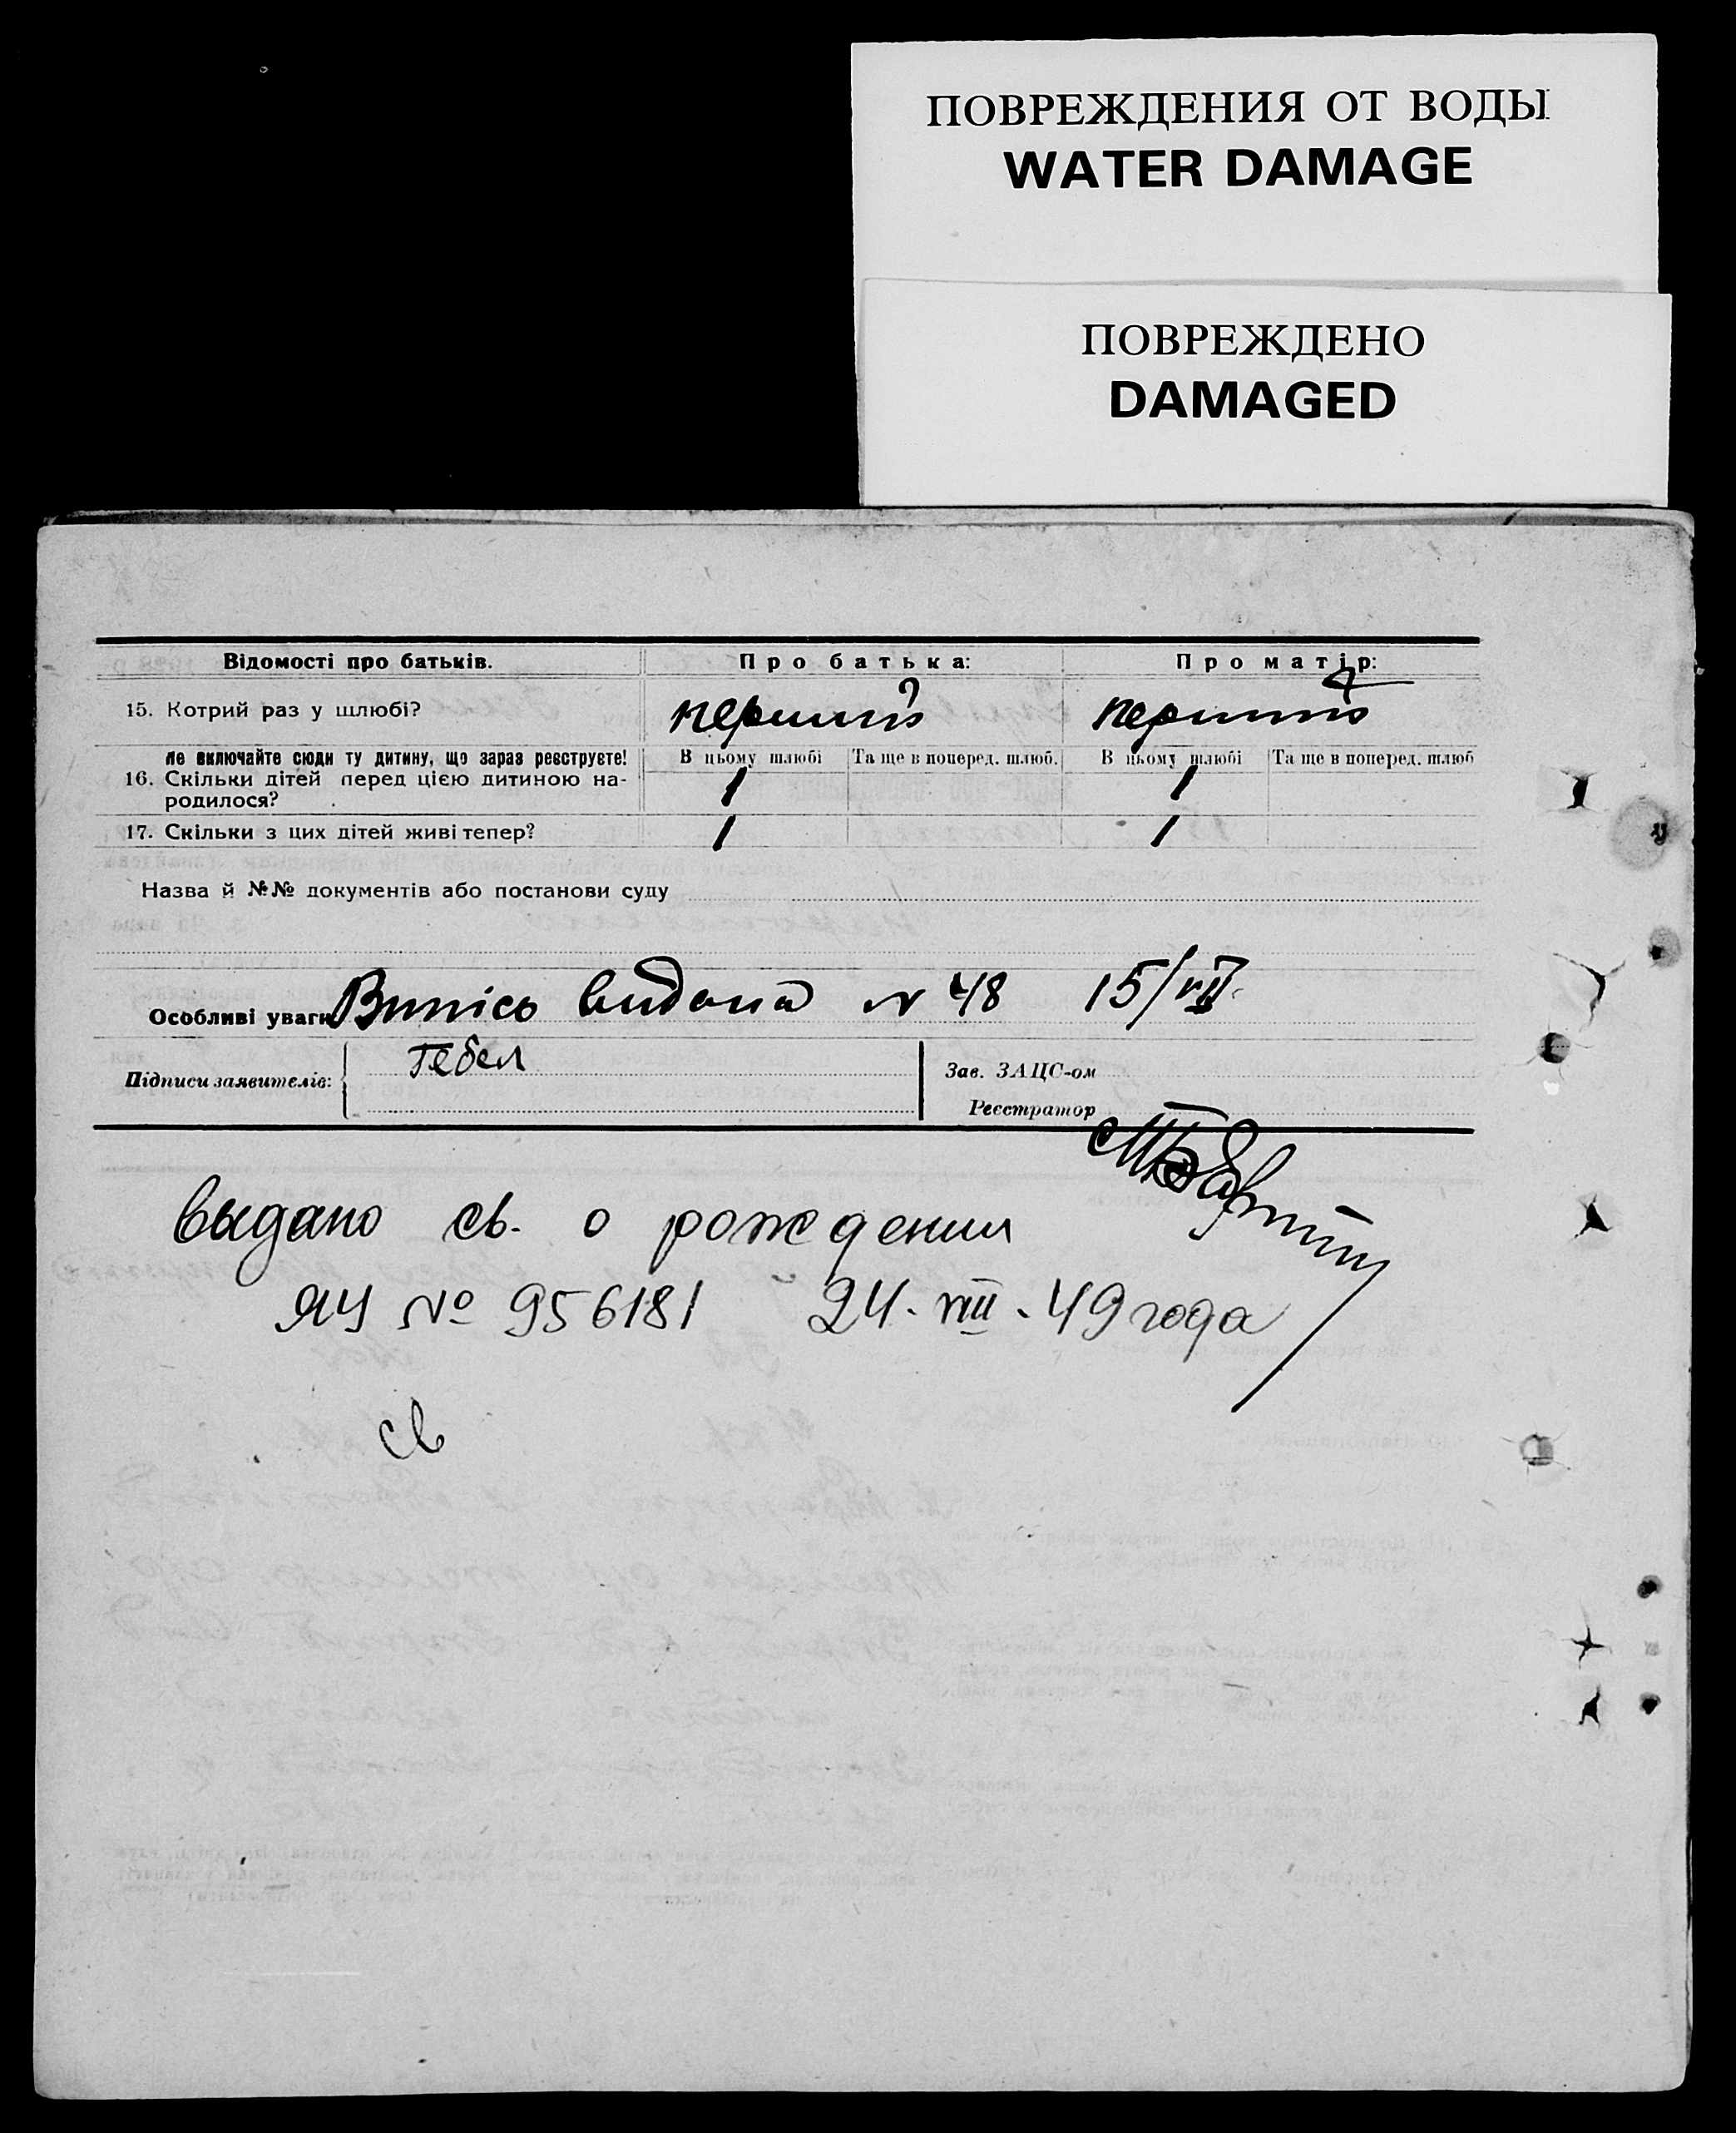 ПОВРЕЖДЕНИЯ ОТ ВОДЫ
WATER DAMAGE
ПОВРЕЖДЕНО
DAMAGED
Відомості про батьків. Про батька: Про матір:
15. Котрий раз у шлюбі? перший перший
Не включайте сюди ту дитину, що зараз реєструєте! В цьому шлюбі Та ще в поперед. шлюб. В цьому шлюбі Та ще в поперед. шлюб
16. Скільки дітей перед цією дитиною на-
родилося? 1 1
17. Скільки з цих дітей живі тепер? 1 1
Назва й №№ документів або постанови суду
Особливі уваги Випісь видана N 48 15/VIII.
Підписи заявителів: Гебел
Зав. ЗАЦС-ом
Реєстратор
выдано св. о рождении
ЯЧ № 956181 24-VIII-49 года
св